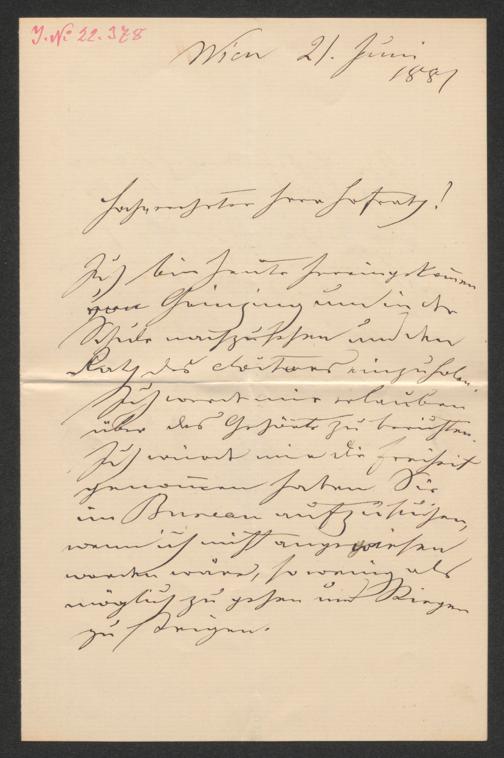 J. № 22.378
Wien 21. Juni
1881
Hochverehrter Herr Hofrath!
Ich bin heute hereingekommen
von Grinzing um in der
Schule nachzusehen und den
Rath des Doktors einzuholen.
Ich werde mir erlauben
über das Gehörte zu berichten.
Ich würde mir die Freiheit
genommen haben Sie
im Bureau aufzusuchen,
wenn ich nicht angewiesen
worden wäre, so wenig als
möglich zu gehen und Stiegen
zu steigen.